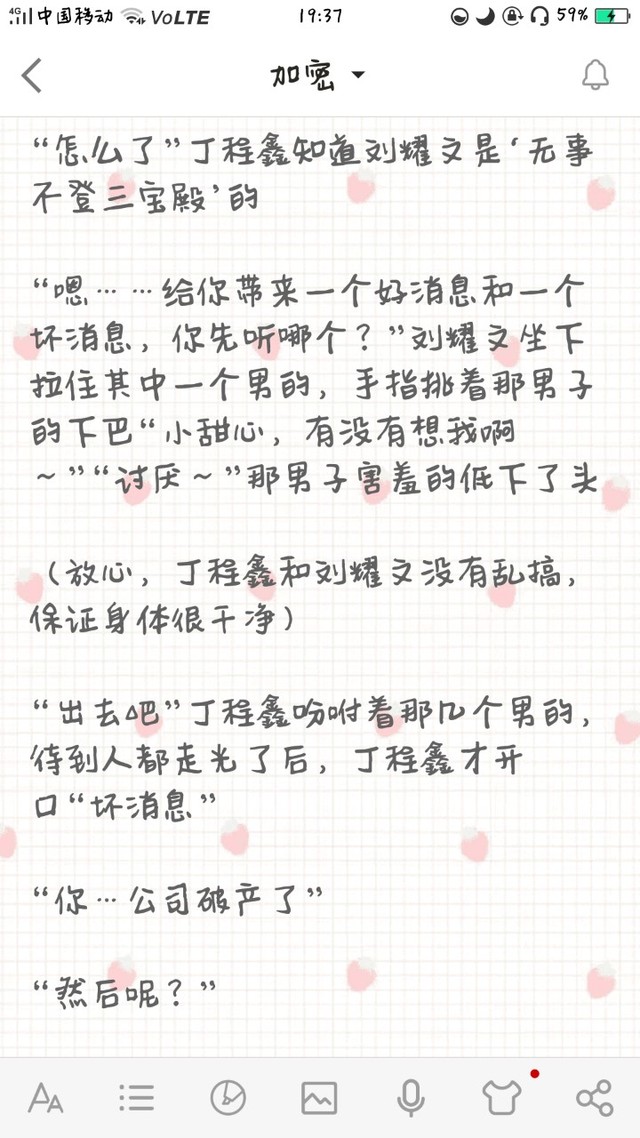 4G 中国移动 VoLTE 19:37 59%
加密
“怎么了”丁程鑫知道刘耀文是‘无事
不登三宝殿’的
“嗯……给你带来一个好消息和一个
坏消息，你先听哪个？”刘耀文坐下
拉住其中一个男的，手指挑着那男子
的下巴“小甜心，有没有想我啊
～”“讨厌～”那男子害羞的低下了头
（放心，丁程鑫和刘耀文没有乱搞，
保证身体很干净）
“出去吧”丁程鑫吩咐着那几个男的，
待到人都走光了后，丁程鑫才开
口“坏消息”
“你…公司破产了”
“然后呢？”
AA